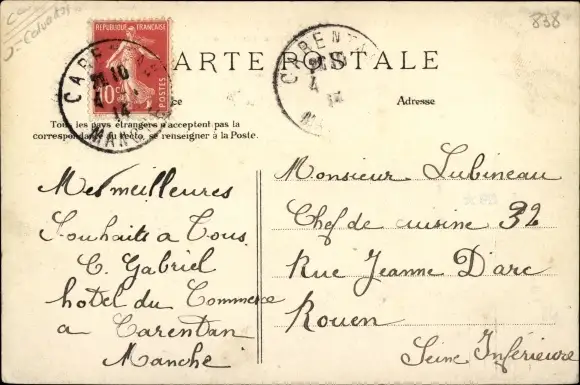 838
REPUBLIQUE FRANÇAISE
POSTES
10c
CARTE POSTALE
CARENTAN
MANCHE
CARENTAN
Adresse
Tous les pays étrangers n'acceptent pas la
correspondance au recto, se renseigner à la Poste.
Mes meilleures
Souhaits a Tous
C. Gabriel
hotel du Commerce
a Carentan
Manche
Monsieur Lubineau
Chef de cuisine 32
Rue Jeanne D'arc
Rouen
Seine Inférieure